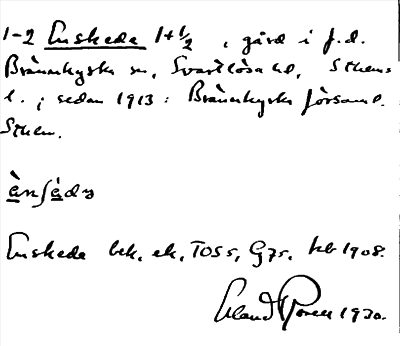 1-2 Enskede 1+½, gård i f.d.
Brännkyrka sn, Svartlösa hd, Sthems
l.; sedan 1913: Brännkyrka församl.
Sthlm.
Enskede bek. ek, TOS 5, G75, 1908.
Erland Rosell 1930.